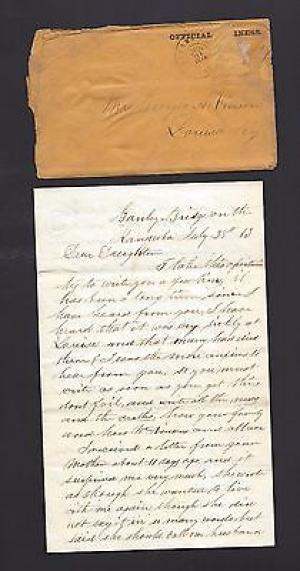 OFFICIAL INESS.
Gauley Bridge on the
Kanawha July 28th 63
Dear Creighton
I take this opportu
ty to write you a few lines, it
has been a long time since I
have heard from you, I have
heard that it was very sickly at
and that many had died
them & I was the more anxious to
hear from you, so you must
write as soon as you get this
dont fail, and write all the news
and the deaths, how your family
and how
I received a letter from your
Mother about 11 days ago and it
surprised me very much, she wrote
as though she wanted to live
with me again though she did
not say it in so many words but
said she should call me husband